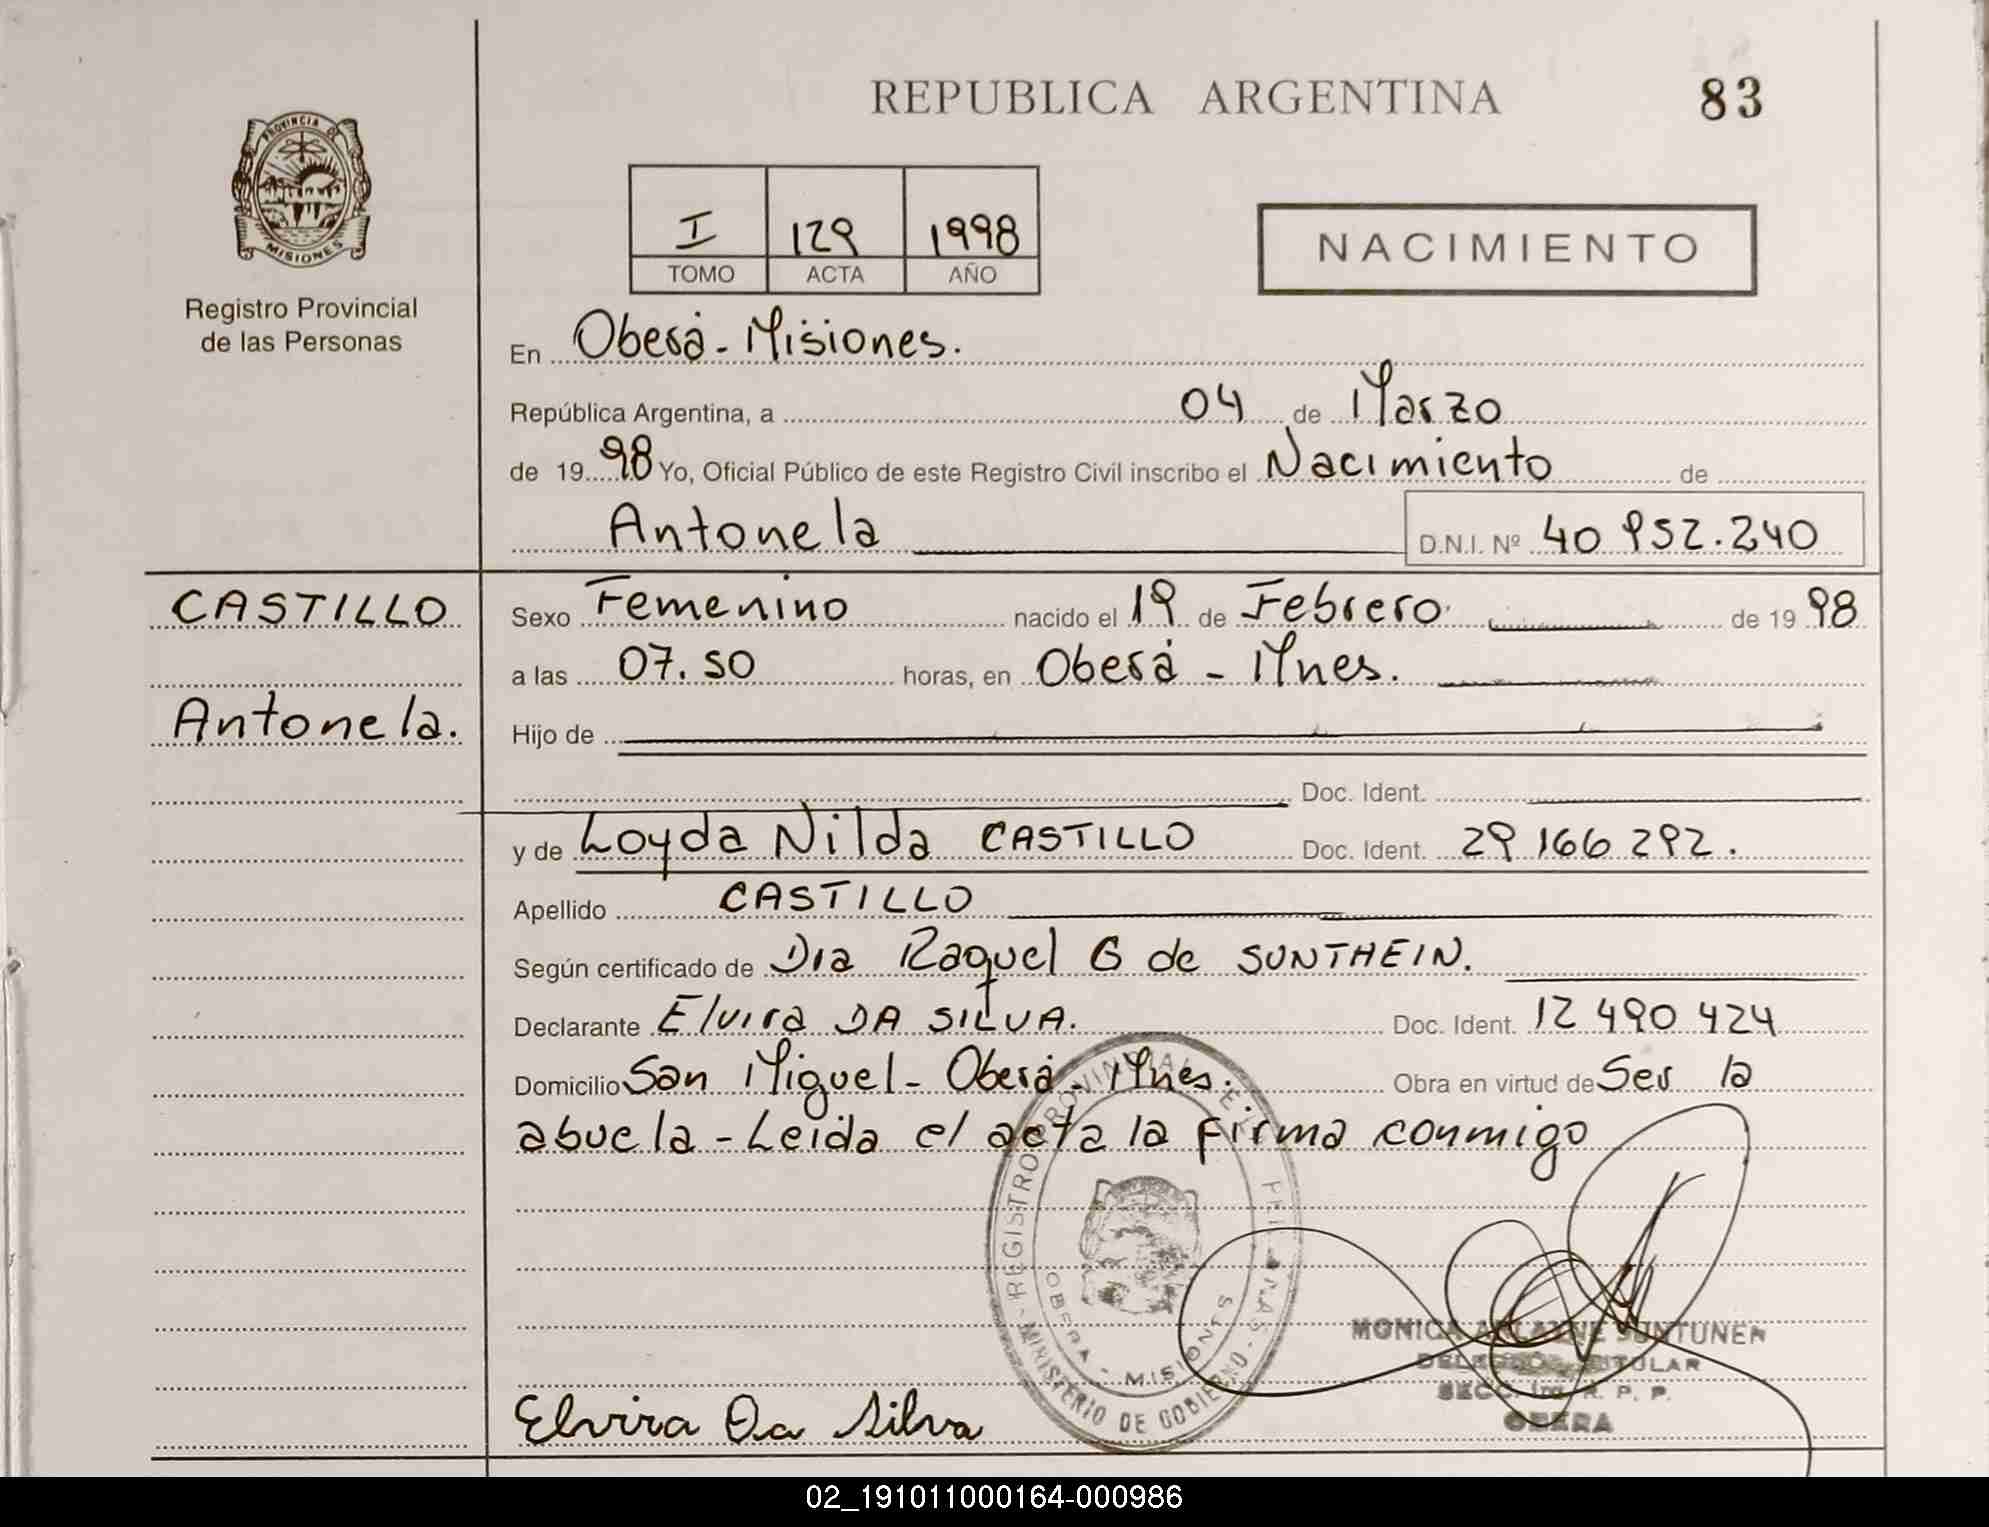 REPUBLICA ARGENTINA
83
PROVINCIA DE
MISIONES
Registro Provincial
de las Personas
I 129 1998
TOMO ACTA AÑO
NACIMIENTO
En Oberá - Misiones.
República Argentina, a 04 de Marzo
de 1998 Yo, Oficial Público de este Registro Civil inscribo el Nacimiento de
Antonela D.N.I. Nº 40 952.240
CASTILLO
Antonela.
Sexo Femenino nacido el 19 de Febrero de 19 98
a las 07.50 horas, en Oberá - Mnes.
Hijo de
Doc. Ident.
y de Loyda Nilda CASTILLO Doc. Ident. 29 166 292.
Apellido CASTILLO
Según certificado de Dra Raquel G de SUNTHEIN.
Declarante Elvira DA SILVA. Doc. Ident. 12 490 424
Domicilio San Miguel - Oberá - Mnes. Obra en virtud de Ser la
abuela - Leida el acta la firma conmigo
REGISTRO PROVINCIAL
MINISTERIO DE GOBIERNO
OBERA - MISIONES
MONICA
TITULAR
SECC. R. P. P.
OBERA
Elvira Da Silva
02_191011000164-000986